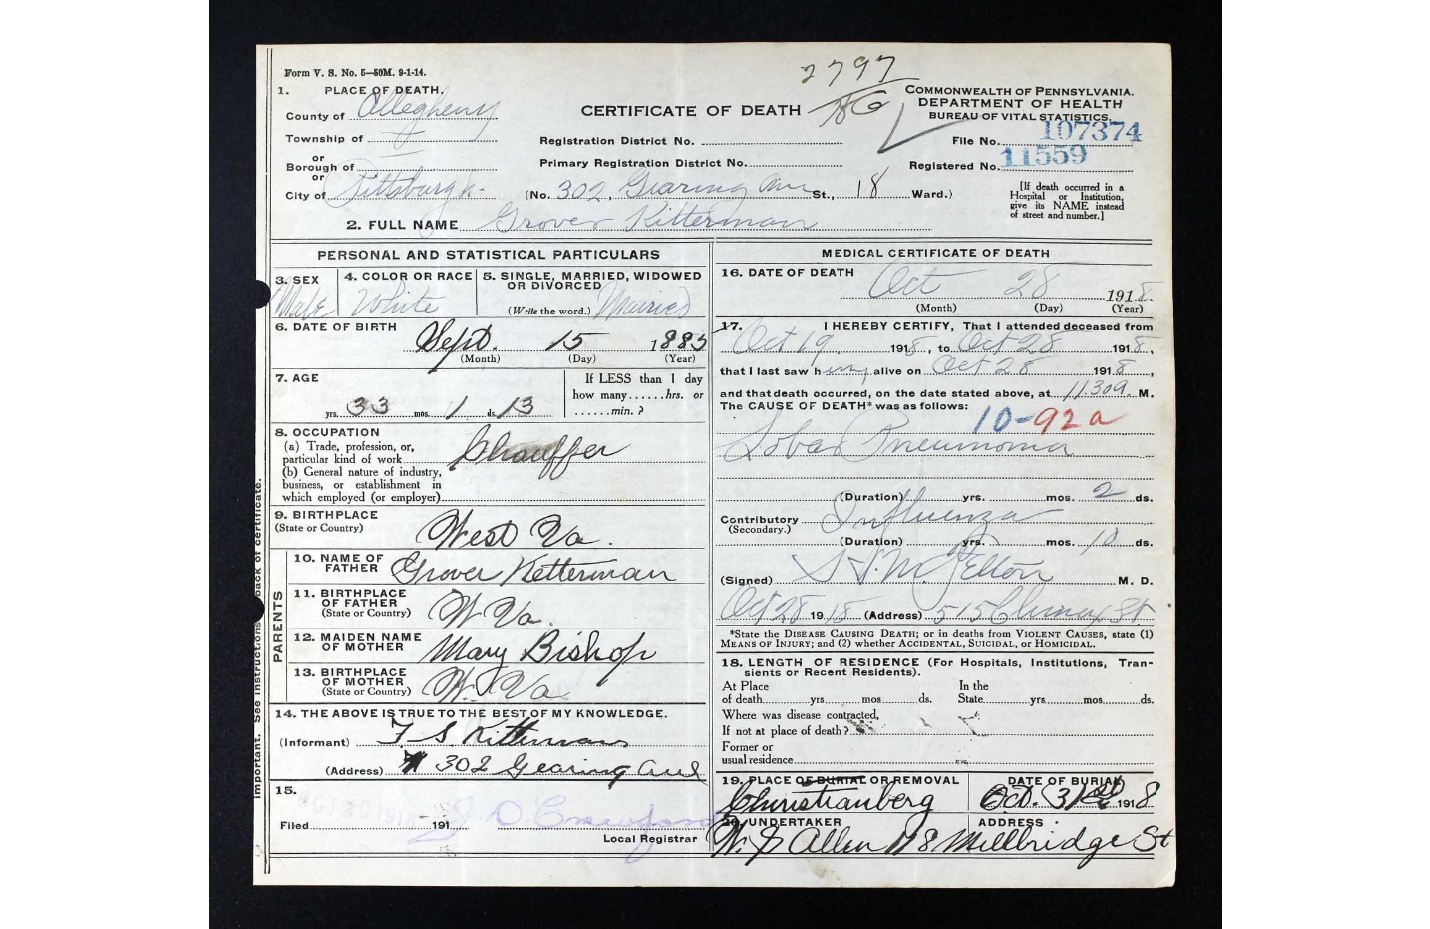 Form V. S. No. 5—50M. 9-1-14.
2797
1. PLACE OF DEATH.
County of Allegheny
Township of
or
Borough of
or
City of Pittsburgh
CERTIFICATE OF DEATH
Registration District No.
Primary Registration District No.
(No. 302, Gearing Ave St., 18 Ward.)
COMMONWEALTH OF PENNSYLVANIA.
DEPARTMENT OF HEALTH
BUREAU OF VITAL STATISTICS.
File No. 107374
Registered No. 11559
[If death occurred in a
Hospital or Institution,
give its NAME instead
of street and number.]
2. FULL NAME Grover Kitterman
PERSONAL AND STATISTICAL PARTICULARS
3. SEX
Male
4. COLOR OR RACE
White
5. SINGLE, MARRIED, WIDOWED
OR DIVORCED
(Write the word.) Married
6. DATE OF BIRTH
Sept. 15 1885
(Month) (Day) (Year)
7. AGE
yrs. 33 mos. 1 ds. 13
If LESS than 1 day
how many......hrs. or
......min. ?
8. OCCUPATION
(a) Trade, profession, or,
particular kind of work Chauffer
(b) General nature of industry,
business, or establishment in
which employed (or employer)
9. BIRTHPLACE
(State or Country) West Va.
PARENTS
10. NAME OF
FATHER Grover Ketterman
11. BIRTHPLACE
OF FATHER
(State or Country) W Va.
12. MAIDEN NAME
OF MOTHER Mary Bishop
13. BIRTHPLACE
OF MOTHER
(State or Country) W. Va
14. THE ABOVE IS TRUE TO THE BEST OF MY KNOWLEDGE.
(Informant) F S. Kitterman
(Address) 302 Gearing Ave
15.
Filed 191
Local Registrar
Important. See instructions back of certificate.
MEDICAL CERTIFICATE OF DEATH
16. DATE OF DEATH
Oct 28 1918.
(Month) (Day) (Year)
17. I HEREBY CERTIFY, That I attended deceased from
Oct 19 1918, to Oct 28 1918,
that I last saw him alive on Oct 28 1918,
and that death occurred, on the date stated above, at 11.30a. M.
The CAUSE OF DEATH* was as follows:
10-92a
Lobar Pneumonia
(Duration) yrs. mos. 2 ds.
Contributory Influenza
(Secondary.)
(Duration) yrs. mos. 10 ds.
(Signed) M. D.
Oct 28 1918 (Address) 515 Climax St
*State the DISEASE CAUSING DEATH; or in deaths from VIOLENT CAUSES, state (1)
MEANS OF INJURY; and (2) whether ACCIDENTAL, SUICIDAL, or HOMICIDAL.
18. LENGTH OF RESIDENCE (For Hospitals, Institutions, Tran-
sients or Recent Residents).
At Place In the
of death yrs mos ds. State yrs mos ds.
Where was disease contracted,
If not at place of death?
Former or
usual residence
19. PLACE OF BURIAL OR REMOVAL
Christianberg
DATE OF BURIAL
Oct. 31st 1918
20. UNDERTAKER
ADDRESS
Allen 118 Millbridge St